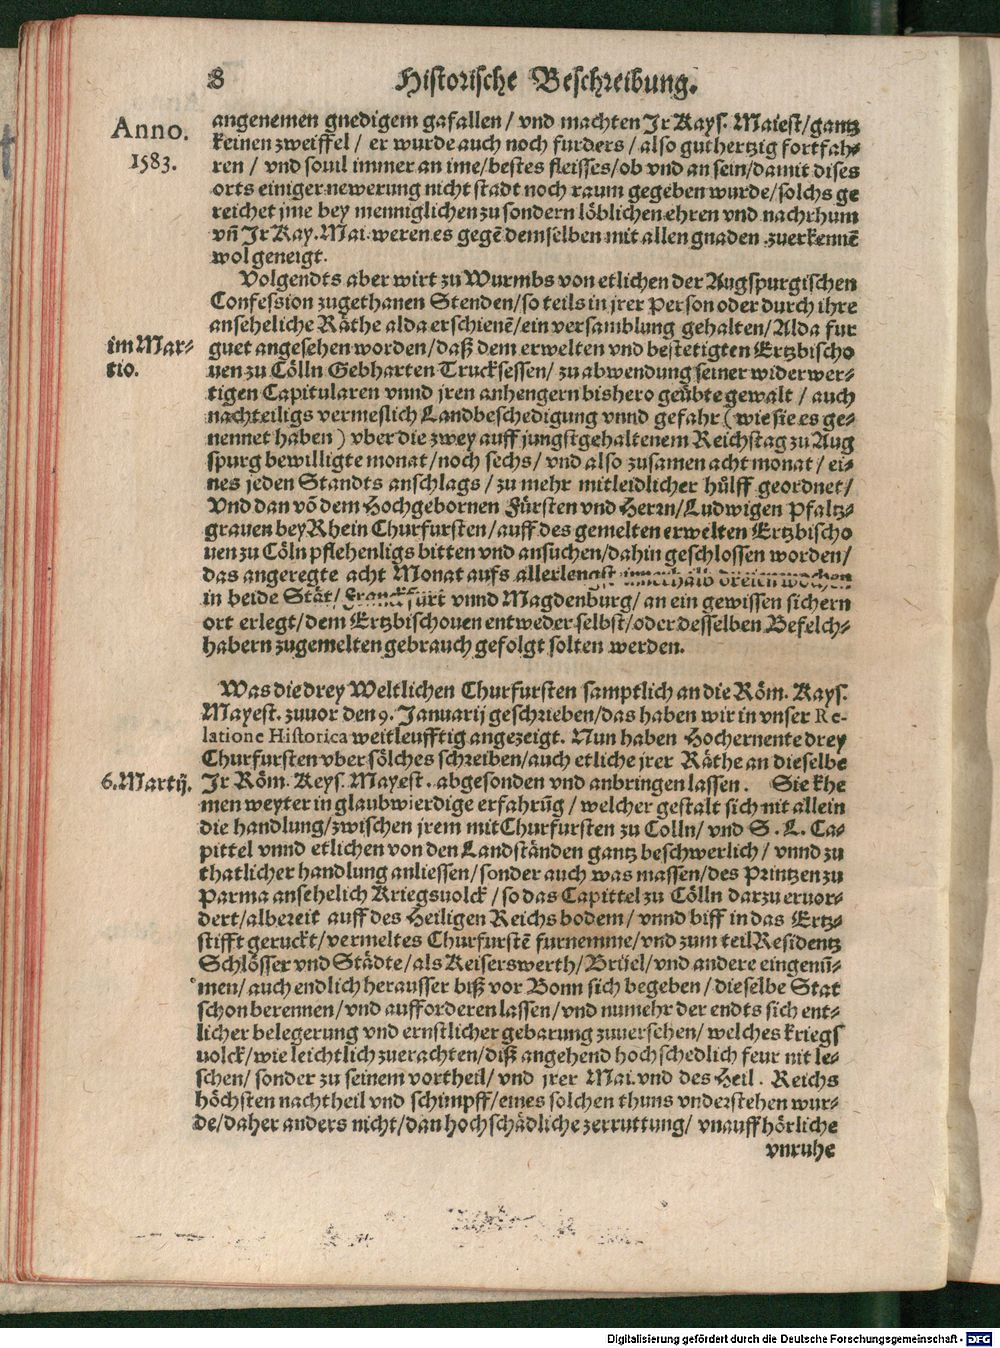 8 Historische Beschreibung.
Anno.
1583.
angenemen gnedigem gafallen / vnd machten Jr Kays. Maiest/gantz
keinen zweiffel / er wurde auch noch furders / also guthertzig fortfah-
ren / vnd souil immer an ime/bestes fleisses/ob vnd an sein/damit dises
orts einiger newerung nicht stadt noch raum gegeben wurde/solchs ge
reichet jme bey menniglichen zu sondern löblichen ehren vnd nachrhum
vñ Jr Kay. Mai. weren es gegē demselben mit allen gnaden zuerkennē
wol geneigt.
Volgendts aber wirt zu Wurmbs von etlichen der Augspurgischen
Confession zugethanen Stenden/so teils in jrer Person oder durch ihre
anseheliche Räthe alda erschienē/ein versamblung gehalten/Alda fur
im Mar-
tio.
guet angesehen worden/daß dem erwelten vnd bestetigten Ertzbischo
uen zu Cölln Gebharten Trucksessen/ zu abwendung seiner widerwer-
tigen Capitularen vnnd jren anhengern bishero geübte gewalt / auch
nachteiligs vermeslich Landbeschedigung vnnd gefahr (wie sie es ge-
nennet haben) vber die zwey auff jungst gehaltenem Reichstag zu Aug
spurg bewilligte monat/noch sechs/ vnd also zusamen acht monat / ei-
nes jeden Standts anschlags / zu mehr mitleidlicher hülff geordnet/
Vnd dan vō dem Hochgebornen Fürsten vnd Herrn/Ludwigen Pfaltz-
grauen bey Rhein Churfursten/auff des gemelten erwelten Ertzbischo
uen zu Cöln pflehenligs bitten vnd ansuchen/dahin geschlossen worden/
das angeregte acht Monat aufs allerlengst innerhalb dreien wochen
in beide Stät/ Franckfurt vnnd Magdenburg/ an ein gewissen sichern
ort erlegt/dem Ertzbischouen entweder selbst/oder desselben Befelch-
habern zugemelten gebrauch gefolgt solten werden.
Was die drey Weltlichen Churfursten samptlich an die Röm. Kays.
Mayest. zuuor den 9. Januarij geschrieben/das haben wir in vnser Re-
latione Historica weitleufftig angezeigt. Nun haben Hochernente drey
Churfursten vber sölches schreiben/auch etliche jrer Räthe an dieselbe
6. Martij.
Jr Röm. Keys. Mayest. abgesonden vnd anbringen lassen. Sie khe
men weyter in glaubwierdige erfahrūg / welcher gestalt sich nit allein
die handlung/zwischen jrem mit Churfursten zu Colln/ vnd S. L. Ca-
pittel vnnd etlichen von den Landständen gantz beschwerlich / vnnd zu
thatlicher handlung anliessen/sonder auch was massen/des Printzen zu
Parma ansehelich Kriegsuolck / so das Capittel zu Cölln darzu eruor-
dert/albereit auff des Heiligen Reichs bodem / vnnd biff in das Ertz-
stifft geruckt/vermeltes Churfurstē furnemme/vnd zum teil Residentz
Schlösser vnd Städte/als Keiserswerth/Brüel/vnd andere eingenū-
men/auch endlich herausser biß vor Bonn sich begeben / dieselbe Stat
schon berennen/vnd aufforderen lassen/vnd numehr der endts sich ent-
licher belegerung vnd ernstlicher gebarung zuuersehen/ welches kriegs
uolck/wie leichtlich zuerachten/diß angehend hochschedlich feur nit le-
schen/ sonder zu seinem vortheil/ vnd jrer Mai. vnd des Heil. Reichs
höchsten nachtheil vnd schimpff/eines solchen thuns vnderstehen wur-
de/daher anders nicht/dan hochschädliche zerruttung/ vnauffhörliche
vnruhe
Digitalisierung gefördert durch die Deutsche Forschungsgemeinschaft - DFG